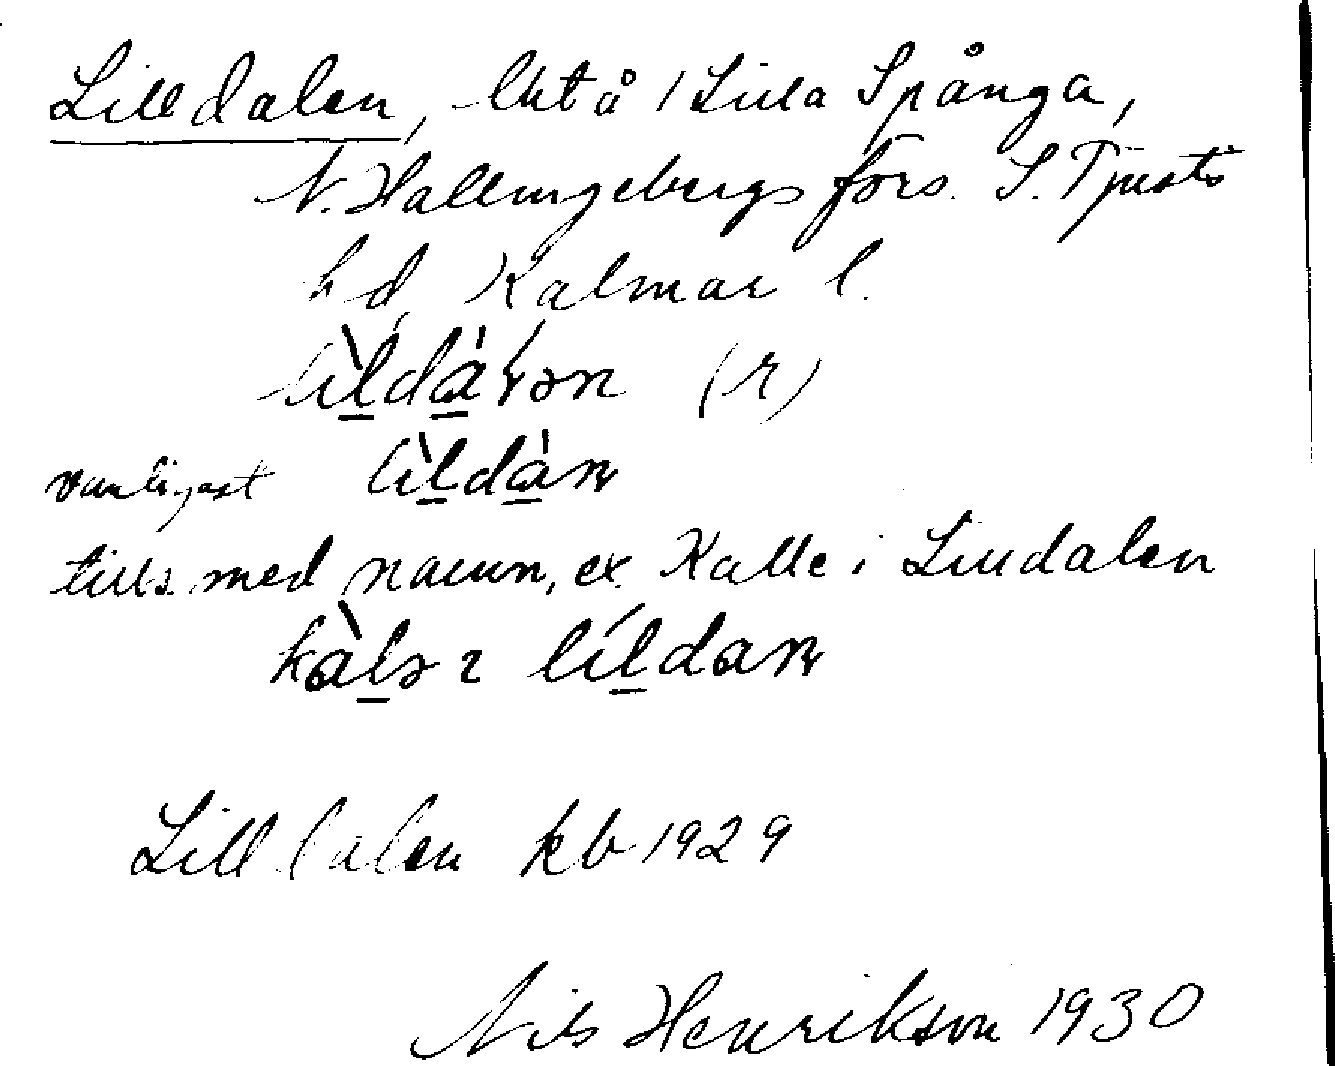 Lilldalen, lht å 1 Lilla Spånga,
N. Hallingebergs förs. S. Tjusts
hd, Kalmar l.
lìldàɽən (r)
vanligast lìldàɳ
tills. med namn, ex. Kalle i Lilldalen
kàlə ɪ líldaɳ
Lilldalen kb 1929
Nils Henrikson 1930